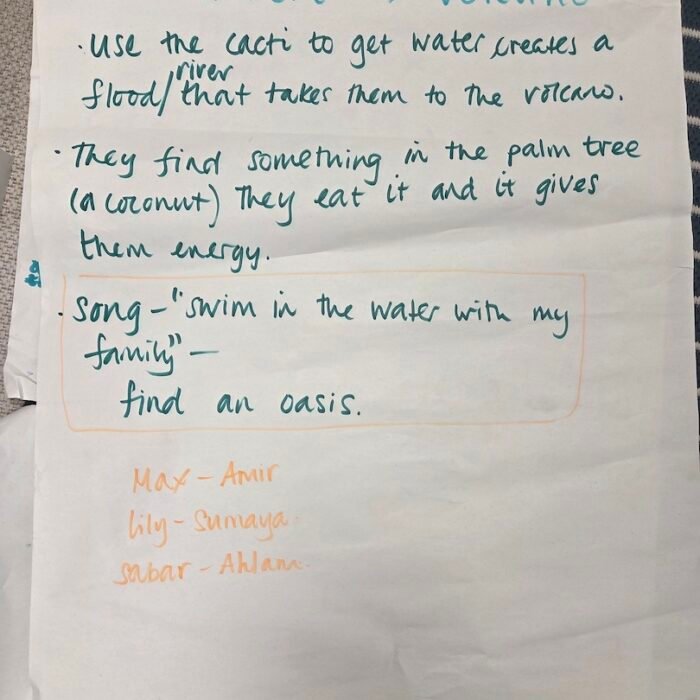 volcano
· Use the cacti to get water, creates a
river
flood/that takes them to the volcano.
· They find something in the palm tree
(a coconut) They eat it and it gives
them energy.
· Song - "swim in the water with my
family" -
find an oasis.
Max - Amir
Lily - Sumaya.
Sabar - Ahlam.